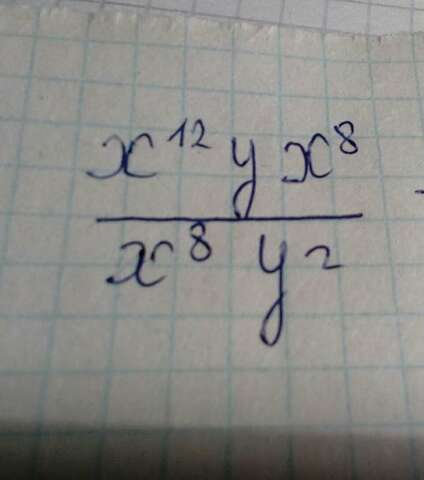 x¹² y x⁸
x⁸ y²